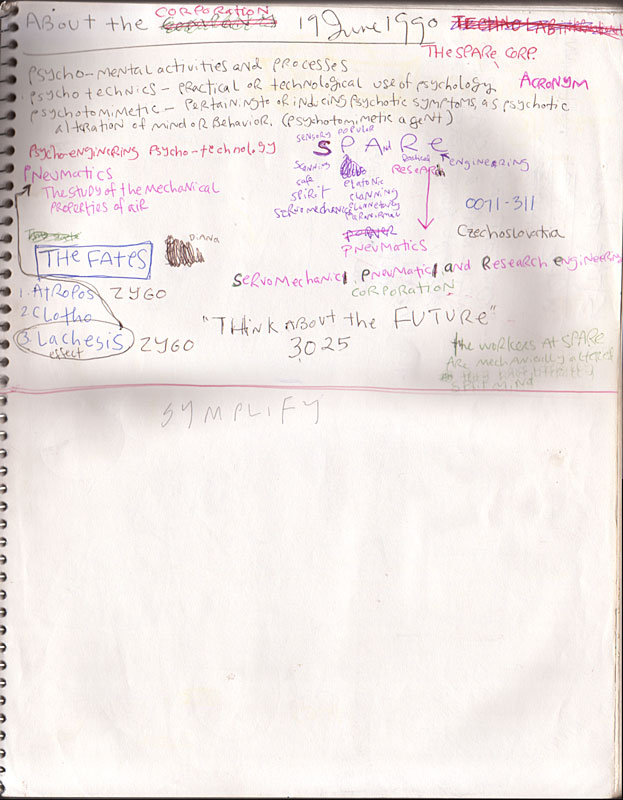 CORPORATION
About the 19 June 1990
THE SPARE CORP.
Psycho-mental activities and processes
ACRONYM
psycho technics - practical or technological use of psychology
psychotomimetic - Pertaining to or inducing psychotic symptoms, as psychotic
alteration of mind or behavior. (psychotomimetic agent)
sensory popular
Psycho-enginering Psycho-technology
SPAndRe
engineering
Radical
RESEARch
PNeumatics
The study of the mechanical
properties of air
scanning
safe
spirit
servomechanics
platonic
planning
planetary
paranormal
power
PNEUMATICS
0071-311
Czechoslovakia
Diana
THE FATES
1. Atropos ZYGO
2. Clotho
3. Lachesis ZYGO
effect
ServoMechanical Pneumatic and Research engineering
CORPORATION
"THINK ABOUT the FUTURE"
3025
the workers at SPARE
Are mechanically altered
SYMPLIFY